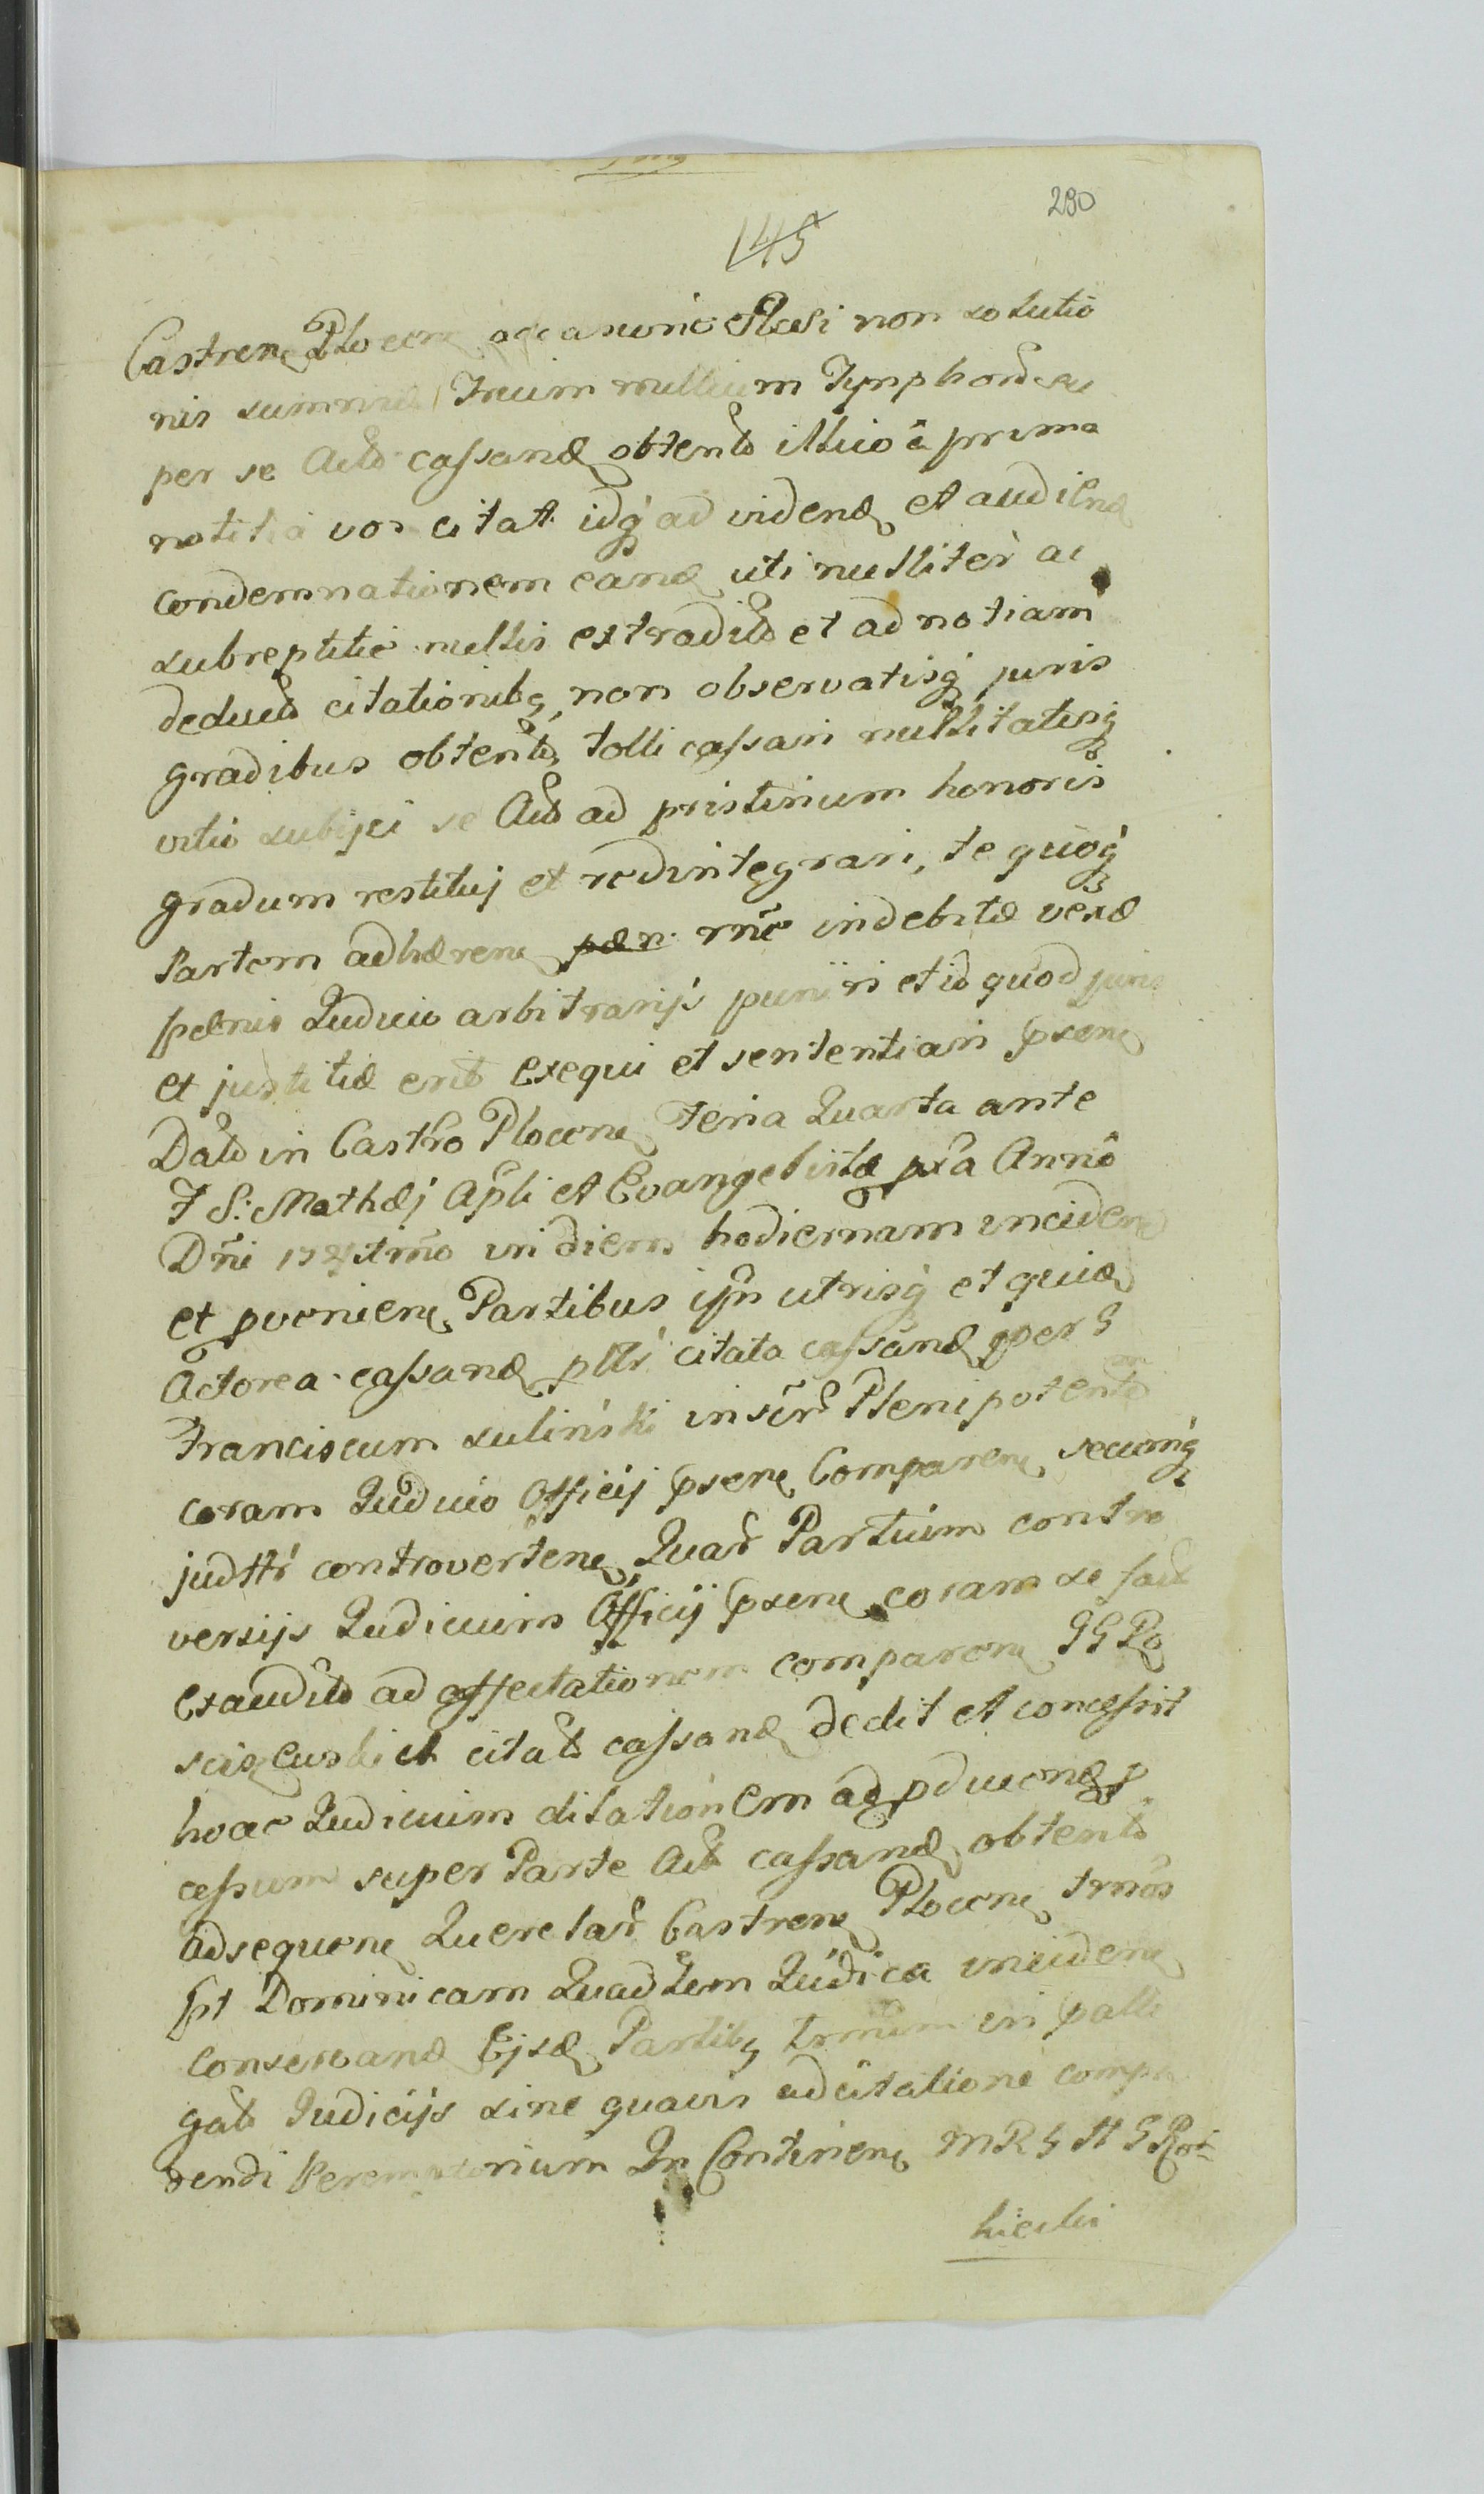 290
145
Castrenẽ Plocenẽ occasione quasi non solutio
nis summae Trium millium Tynphorũ su
per se Actõ cassandẽ obtentõ illico â prima
notitia vos citat idq̃ ad videndẽ et audiendẽ
condemnationem eandẽ uti nulliter ac
subreptitie nullis extraditõ et ad notiam
deductõ citationibq̃ non observatisq̃ juris
gradibus obtentõ, tolli cassari nullitatisq̃
vitio subijci se Actõ ad pristinum honoris
gradum restituj et redintegrari, te quoq̃
Partem adhærenẽ rñe indebitæ vexæ
pœnis Judicio arbitrarijs puniri et id quod juris
et justitiæ erit exequi et sententiari pñsenẽ
Datõ in Castro Plocenẽ Feria Quarta ante
F S: Mathæj Apli et Evangelistæ pxa Annô
Dñi 17 in diem hodiernam incidenẽ
et pveniene Partibus ipñ utrisq̃ et quidẽ
Actorea cassandẽ pltr citata cassandẽ per G
Franciscum Suliński inscrũ Plenipotentem
coram Judicio Officij pñsenẽ Comparenẽ secumq̃
judltr controvertenẽ Quarũ Partium contro
versijs Judicium Officij pñsenẽ coram se fact
exauditõ ad affectationem comparenẽ GG Ro
sciszewskich citatõ cassandẽ dedit et concessit
hocce Judicium dilationem ad pducendẽ p
cessum super Parte Act cassandẽ obtentõ
adsequenẽ Querelarũ Castrenẽ Plocenẽ trños
pt Dominicam Quadlem Judica incidenẽ
Conservandẽ Ejsdẽ Partibq̃ trñum in palle
gatõ Judicijs sine quavis adcitatione compa
rendi Peremptorium In Continenẽ MRG H G Rot-
hiecki